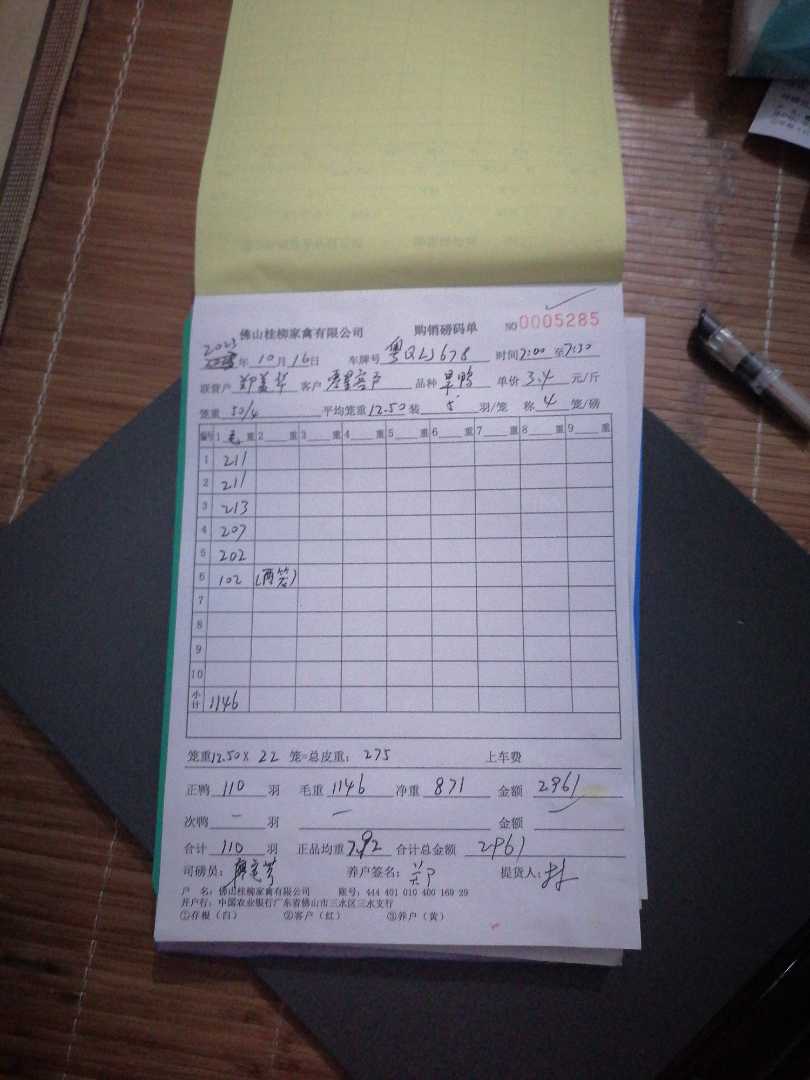 佛山桂柳家禽有限公司 购销磅码单 NO0005285
2023年10月16日 车牌号粤QLJ678 时间7:00至7:30
联营户 客户 品种旱鸭 单价3.4元/斤
笼重50/4 平均笼重12.50装5羽/笼 称4笼/磅
编号 1毛重 2重 3重 4重 5重 6重 7重 8重 9重
1 211
2 211
3 213
4 207
5 202
6 102 (两笼)
7
8
9
10
小计 1146
笼重12.50X22笼=总皮重:275 上车费
正鸭110羽 毛重1146 净重871 金额2961
次鸭一羽 一 金额
合计110羽 正品均重7.92 合计总金额2961
司磅员: 养户签名: 提货人:林
户 名:佛山桂柳家禽有限公司 账号:444 401 010 400 169 29
开户行:中国农业银行广东省佛山市三水区三水支行
①存根(白) ②客户(红) ③养户(黄)